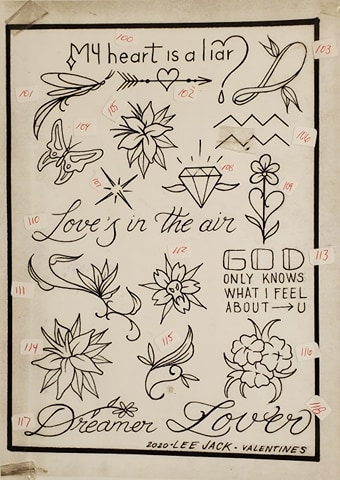 100
My heart is a liar
103
101
102
105
104
106
108
109
110
Love's in the air
112
GOD
113
ONLY KNOWS
WHAT I FEEL
ABOUT → U
111
114
115
116
117
Dreamer Lover
2020 - LEE JACK - VALENTINES